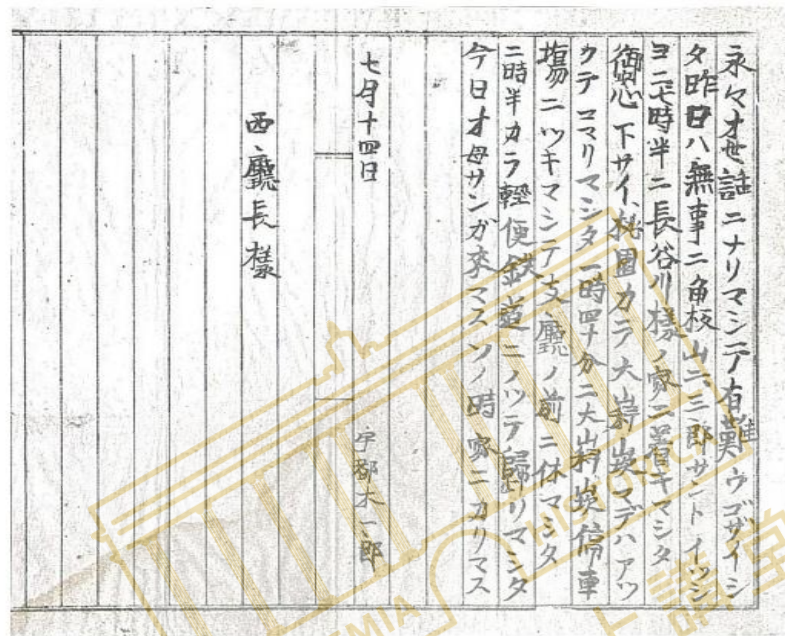 永々オ世話ニナリマシテ有難ウゴザイシ
タ昨日ハ無事ニ角板山ニ、三郎サントイッシ
ヨニ七時半ニ長谷川様ノ家ニ着キマシタ
御安心下サイ、桃園カラ大嵙崁マデハアツ
クテコマリマシタ一時四十分ニ大嵙崁停車
場ニツキマシテ支廳ノ前ニ休マミタ
二時半カラ軽便鉄道ニノッテ歸リマシタ
今日オ母サンガ来マスソノ時家ニカリマス
七月十四日
宇都木一郎
西、廳長様